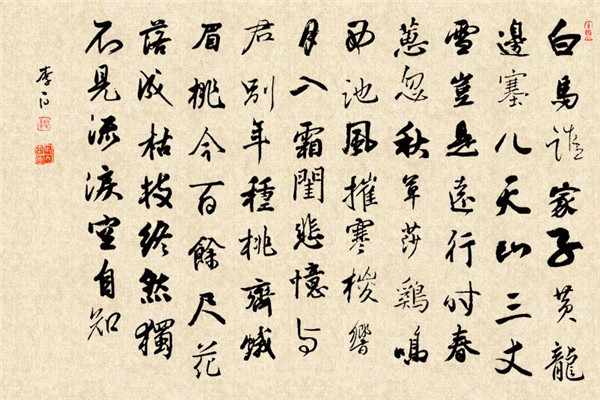 白馬誰家子黃龍
邊塞儿天山三丈
雪豈是遠行时春
蕙忽秋草莎鷄鳴
西池風摧寒梭響
月入霜閨悲憶与
君别年種桃齊蛾
眉桃今百餘尺花
落成枯枝終然獨
不見流淚空自知
李白